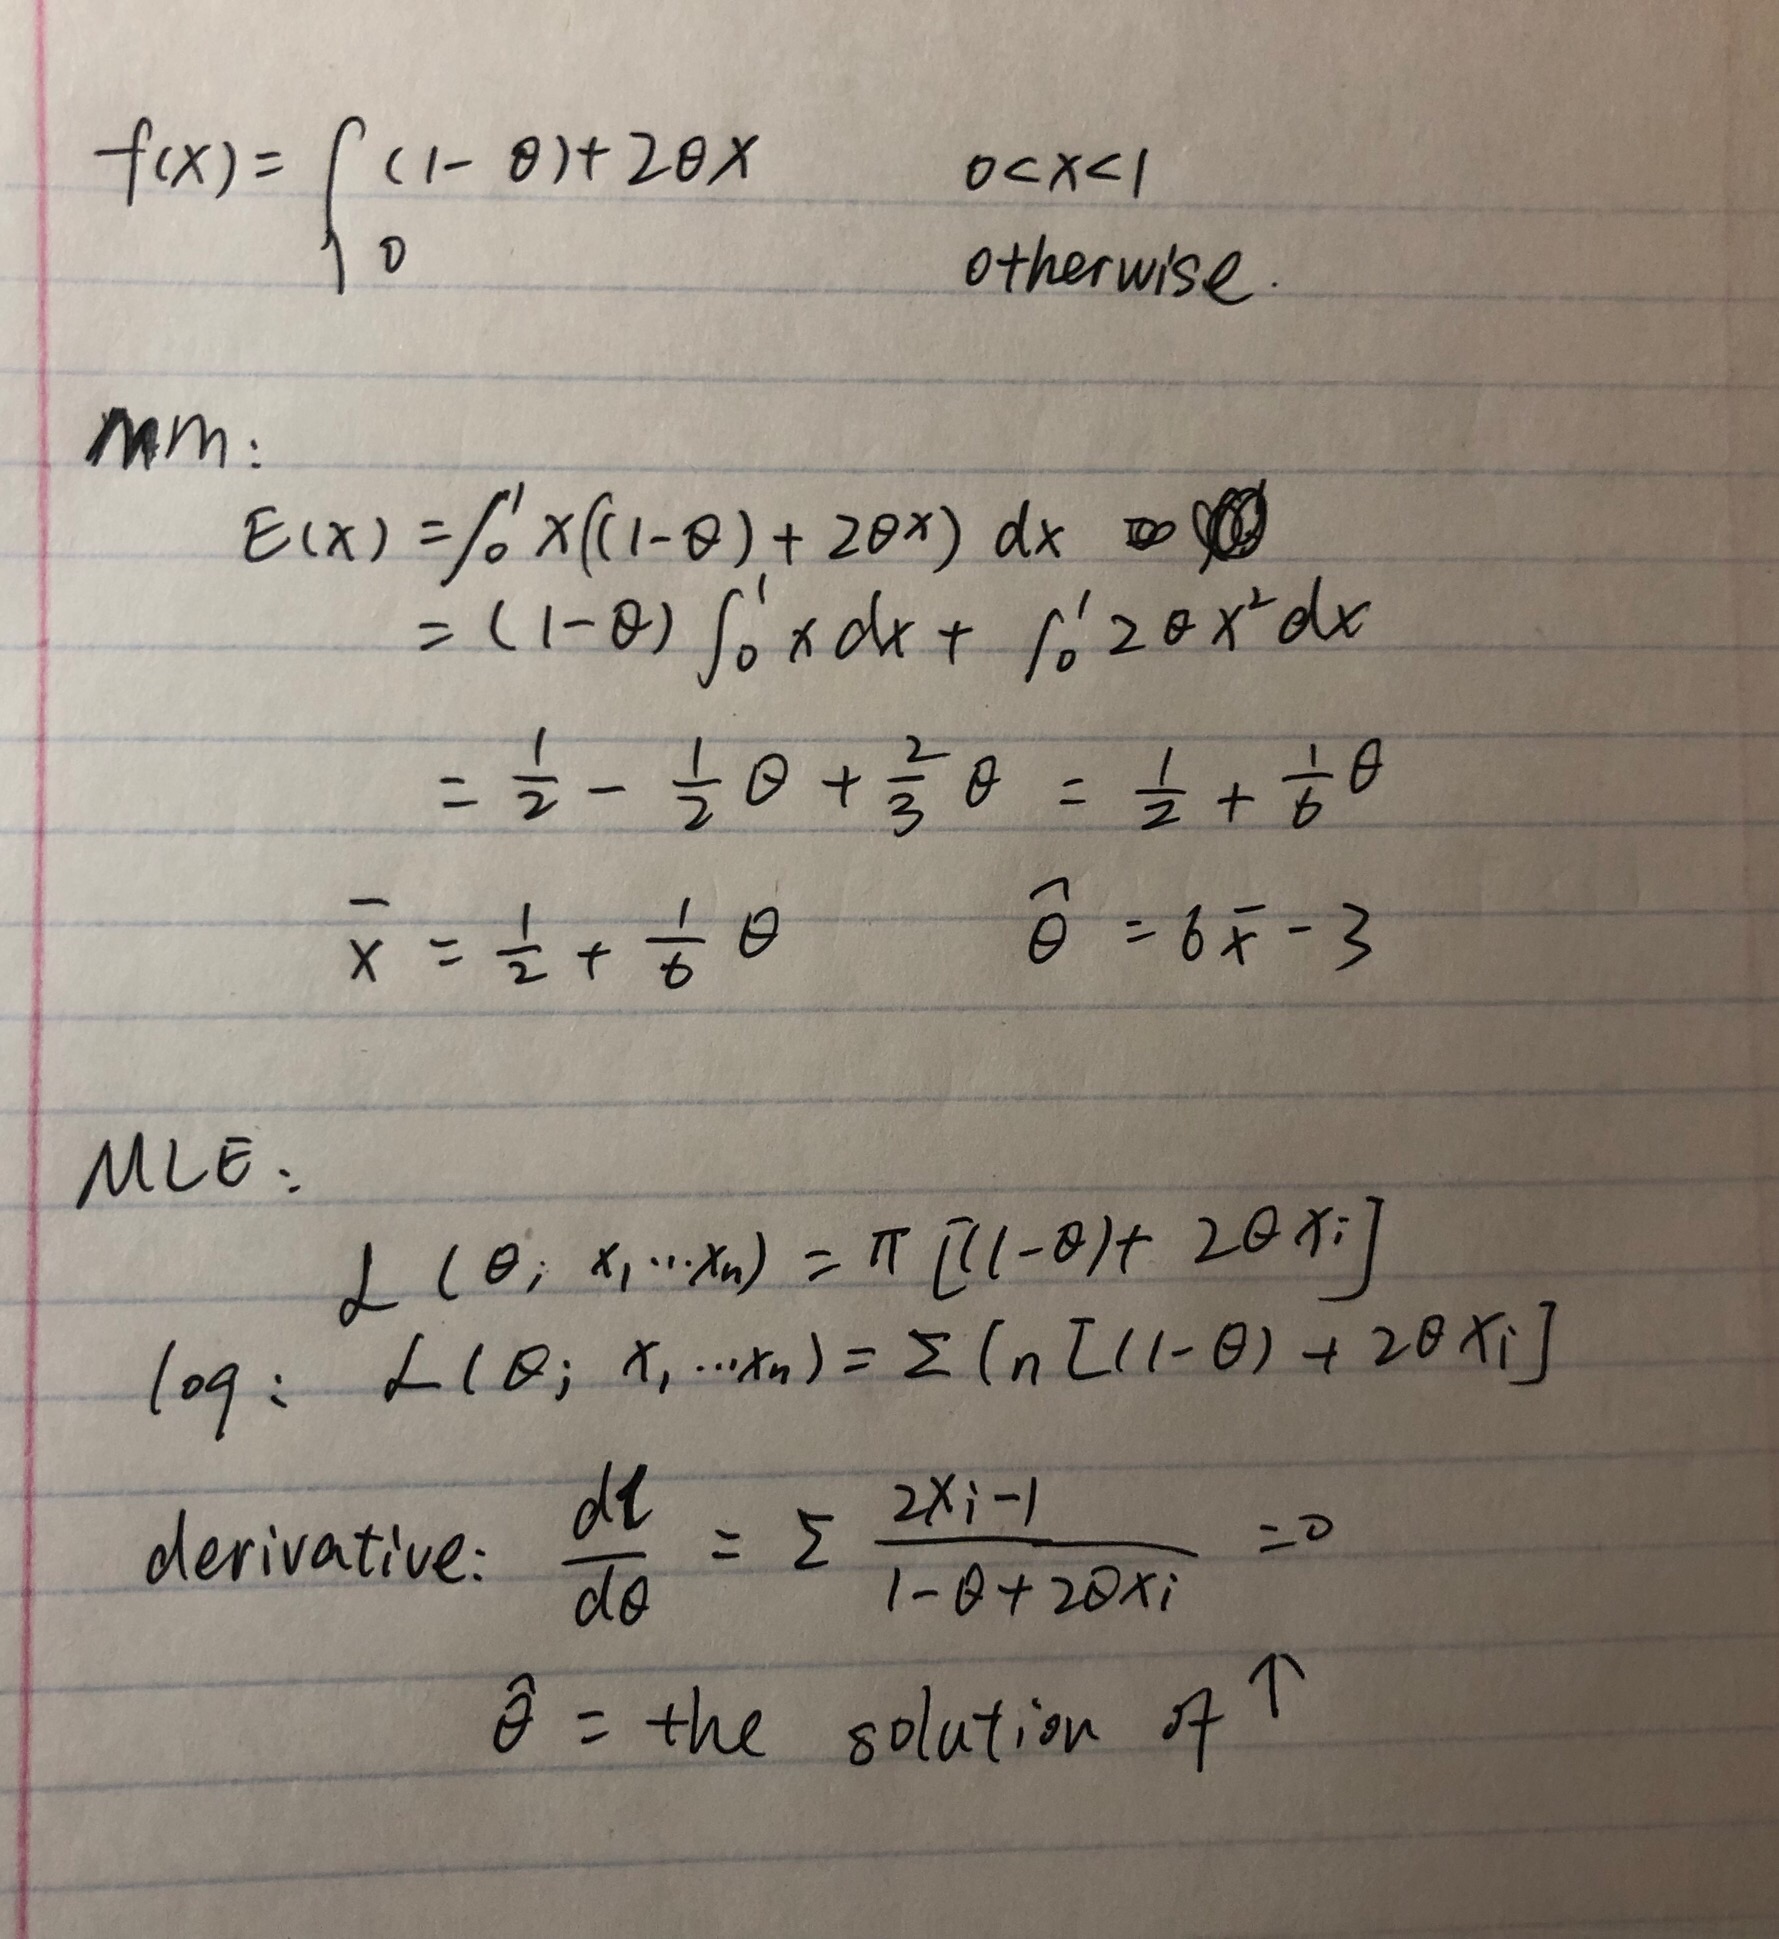 f(x) = { (1 - θ) + 2θx 0<x<1
0 otherwise.
MM:
E(x) = ∫₀¹ x((1-θ) + 2θx) dx
= (1-θ) ∫₀¹ x dx + ∫₀¹ 2θx² dx
= 1/2 - 1/2 θ + 2/3 θ = 1/2 + 1/6 θ
x̄ = 1/2 + 1/6 θ θ̂ = 6x̄ - 3
MLE:
L(θ; x₁...xₙ) = π [(1-θ) + 2θxᵢ]
log: L(θ; x₁...xₙ) = Σ ln [(1-θ) + 2θxᵢ]
derivative: dℓ/dθ = Σ (2xᵢ-1)/(1-θ+2θxᵢ) = 0
θ̂ = the solution of ↑